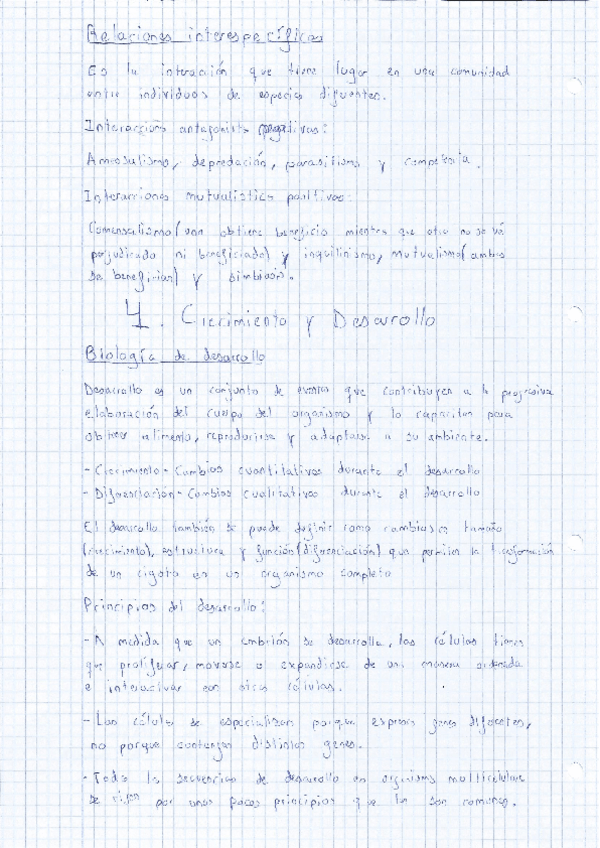 Relaciones interespecíficas
Es la interacción que tiene lugar en una comunidad
entre individuos de especies diferentes.
Interacciones antagonists negativas:
Amensalismo, depredación, parasitismo y competencia.
Interacciones mutualistics positivas:
Comensalismo (uno obtiene beneficio mientras que otro no se vá
perjudicado ni beneficiado) y inquilinismo, mutualismo (ambos
se benefician) y simbiosis.
4. Crecimiento y Desarollo
Biología de desarollo
Desarollo es un conjunto de eventos que contribuyen a la progresiva
elaboración del cuerpo del organismo y lo capacitan para
obtener alimento, reproducirse y adaptarse a su ambiente.
- Crecimiento - Cambios cuantitativos durante el desarollo
- Diferenciación - Cambios cualitativos durante el desarollo
El desarollo también se puede definir como cambios en tamaño
(crecimiento), estructura y función (diferenciación) que permiten la trasformación
de un cigoto en un organismo completo
Principios del desarollo:
- A medida que un embrión se desarolla, las células tienen
que proliferar, moverse o expandirse de una manera ordenada
e interactuar con otras células.
- Las células se especializan porque expresan genes diferentes,
no porque contengan distintos genes.
- Toda la secuencias de desarollo en organisms multicelulares
se rigen por unos pocos principios que los son comunes.